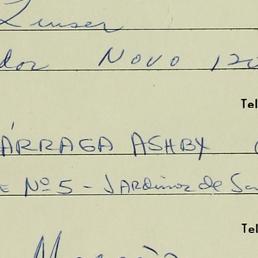 Zenser
dor Novo 120
Tel
ÁRRAGA ASHBY
E Nº 5 - JARDINOZ de Sa
Tel